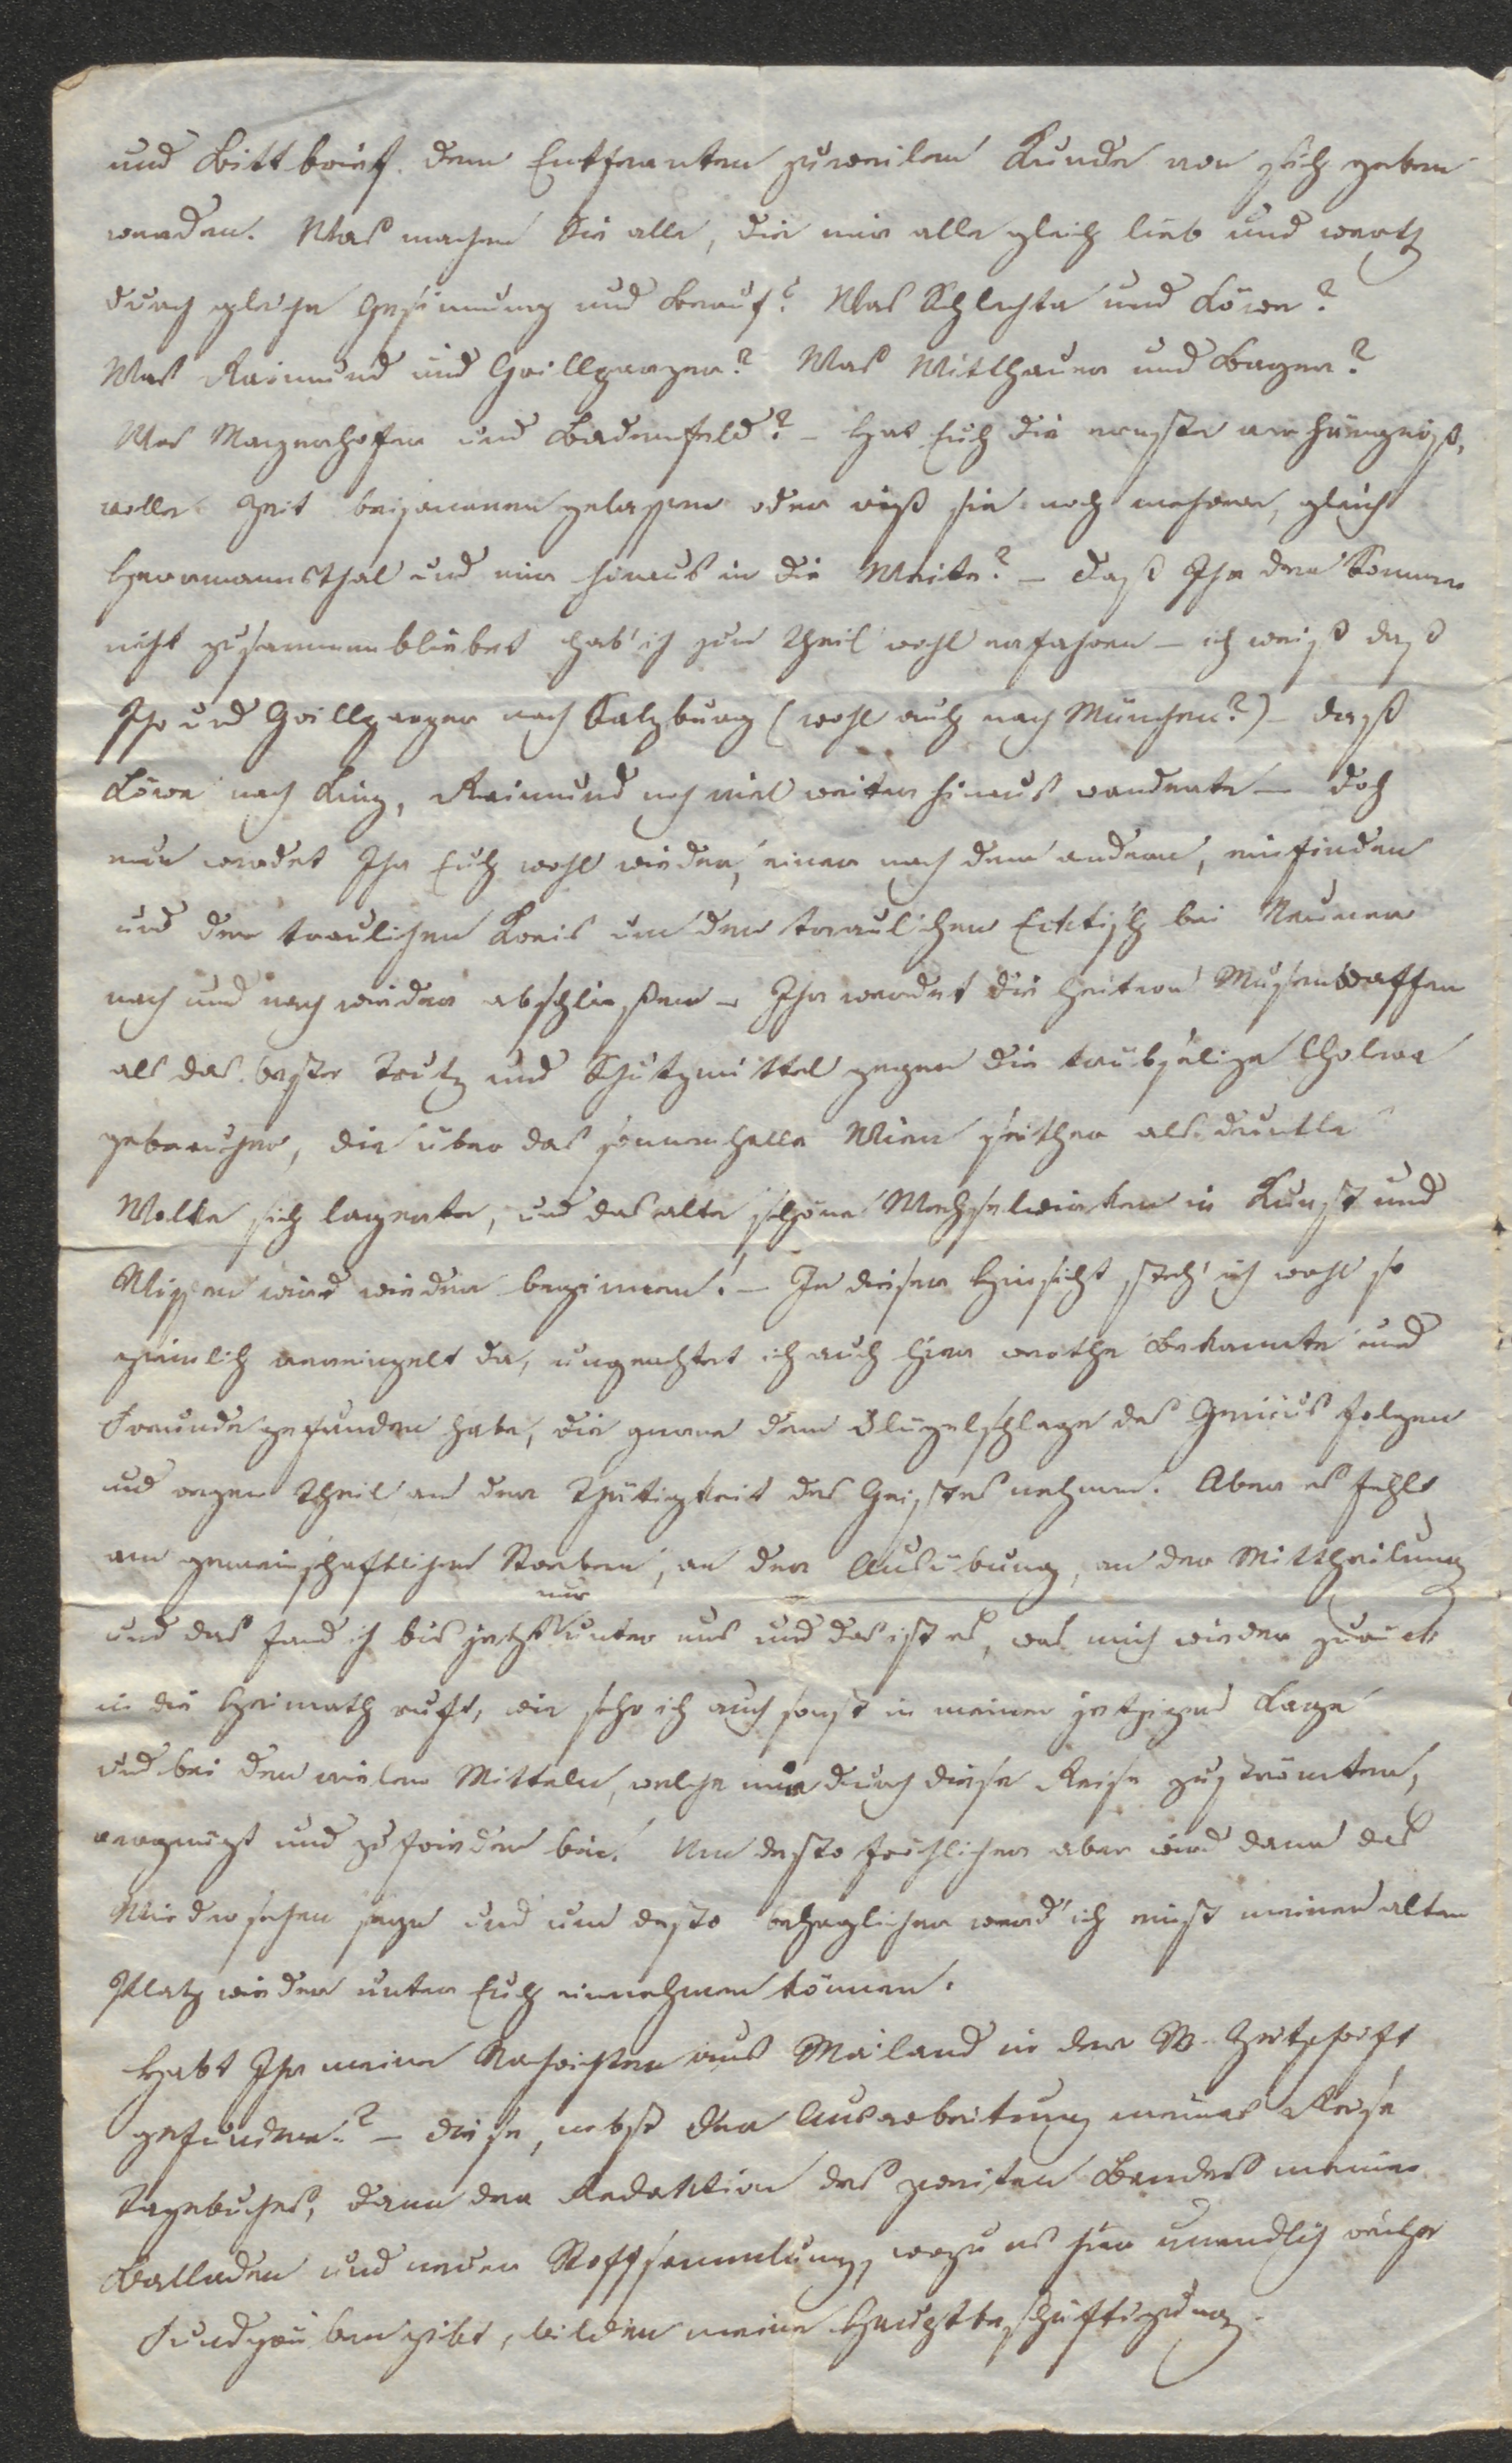 und Bittbrief dem Entfernten zuweilen Kunde von sich geben
werden. Was machen Sie alle, die mir alle gleich lieb und werth
durch gleiche Gesinnung und Beruf? Was Schlechta und Löwe?
Was Raimund und Grillparzer? Was Witthauer und Bayer?
Was Mayerhofer und Badenfeld? – Hat Euch die ernste verhängniß-
volle Zeit beisammen gelassen oder riß sie noch mehrere, gleich
Herrmannsthal und mir hinaus in die Weite? – Daß Ihr den Sommer
nicht zusammenbliebet hab' ich zum Theil wohl erfahren – ich weiß daß
Ihr und Grillparzer nach Salzburg (wohl auch nach München?) – daß
Löwe nach Linz, Raimund noch viel weiter hinaus wanderte – doch
nun werdet Ihr Euch wohl wieder, einer nach dem andern, einfinden
und den traulichen Kreis um den traulichen Ecktisch bei Neuner
nach und nach wieder abschließen – Ihr werdet die heitern Musenwaffen
als das beste Trutz und Schutzmittel gegen die trübselige Cholera
gebrauchen, die über das sonnenhelle Wien seither als dunkle
Wolke sich lagerte, und das alte schöne Wechselwirken in Kunst und
Wissen wird wieder beginnen! – In dieser Hinsicht steh' ich wohl so
ziemlich vereinzelt da, ungeachtet ich auch hier werthe Bekannte und
Freunde gefunden habe, die gerne dem Flügelschlage des Genius folgen
und regen Theil an der Thätigkeit des Geistes nehmen. Aber es fehlt
am gemeinschaftlichen Streben, an der Ausübung, an der Mittheilung
und das fand ich bis jetzt nur unter uns und das ist es, was mich wieder zurück
in die Heimath ruft, wie sehr ich auch sonst in meiner jetzigen Lage
und bei den vielen Mitteln, welche mir durch diese Reise zuströmten,
vergnügt und zufrieden bin. Um desto fröhlicher aber wird dann das
Wiedersehen seyn und um desto behaglicher werd' ich einst meinen alten
Platz wieder unter Euch einnehmen können.
Habt Ihr meine Nachrichten aus Mailand in der W. Zeitschrift
gefunden? – diese, nebst der Ausarbeitung meines Reise
Tagebuches, dann der Redaktion des zweiten Bandes meiner
Balladen und neuer Stoffsammlung, wozu es hier unendlich reiche
Fundgruben gibt, bilden meine Hauptbeschäftigung.